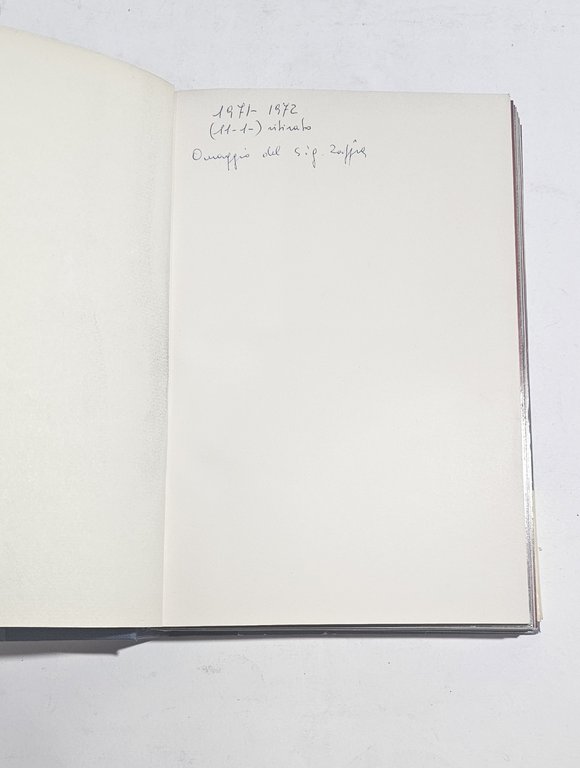 1971-1972
(11-1-) ritirato
Omaggio del sig.